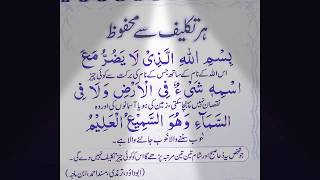 ہر تکلیف سے محفوظ
بِسْمِ اللهِ الَّذِیْ لَا یَضُرُّ مَعَ
اس اللہ کے نام کے ساتھ جس کے نام کی برکت سے کوئی چیز
اسْمِهٖ شَیْءٌ فِی الْاَرْضِ وَلَا فِی
نقصان نہیں پہنچا سکتی، زمین کی ہو یا آسمانوں کی اور وہ
السَّمَآءِ وَهُوَ السَّمِیْعُ الْعَلِیْمُ
خوب سننے والا خوب جاننے والا ہے۔
جو شخص یہ دعا صبح اور شام تین تین مرتبہ پڑھے گا اس کو کوئی چیز تکلیف نہیں دے گی۔
(ابوداؤد، ترمذی، مسند احمد، ابن ماجہ)